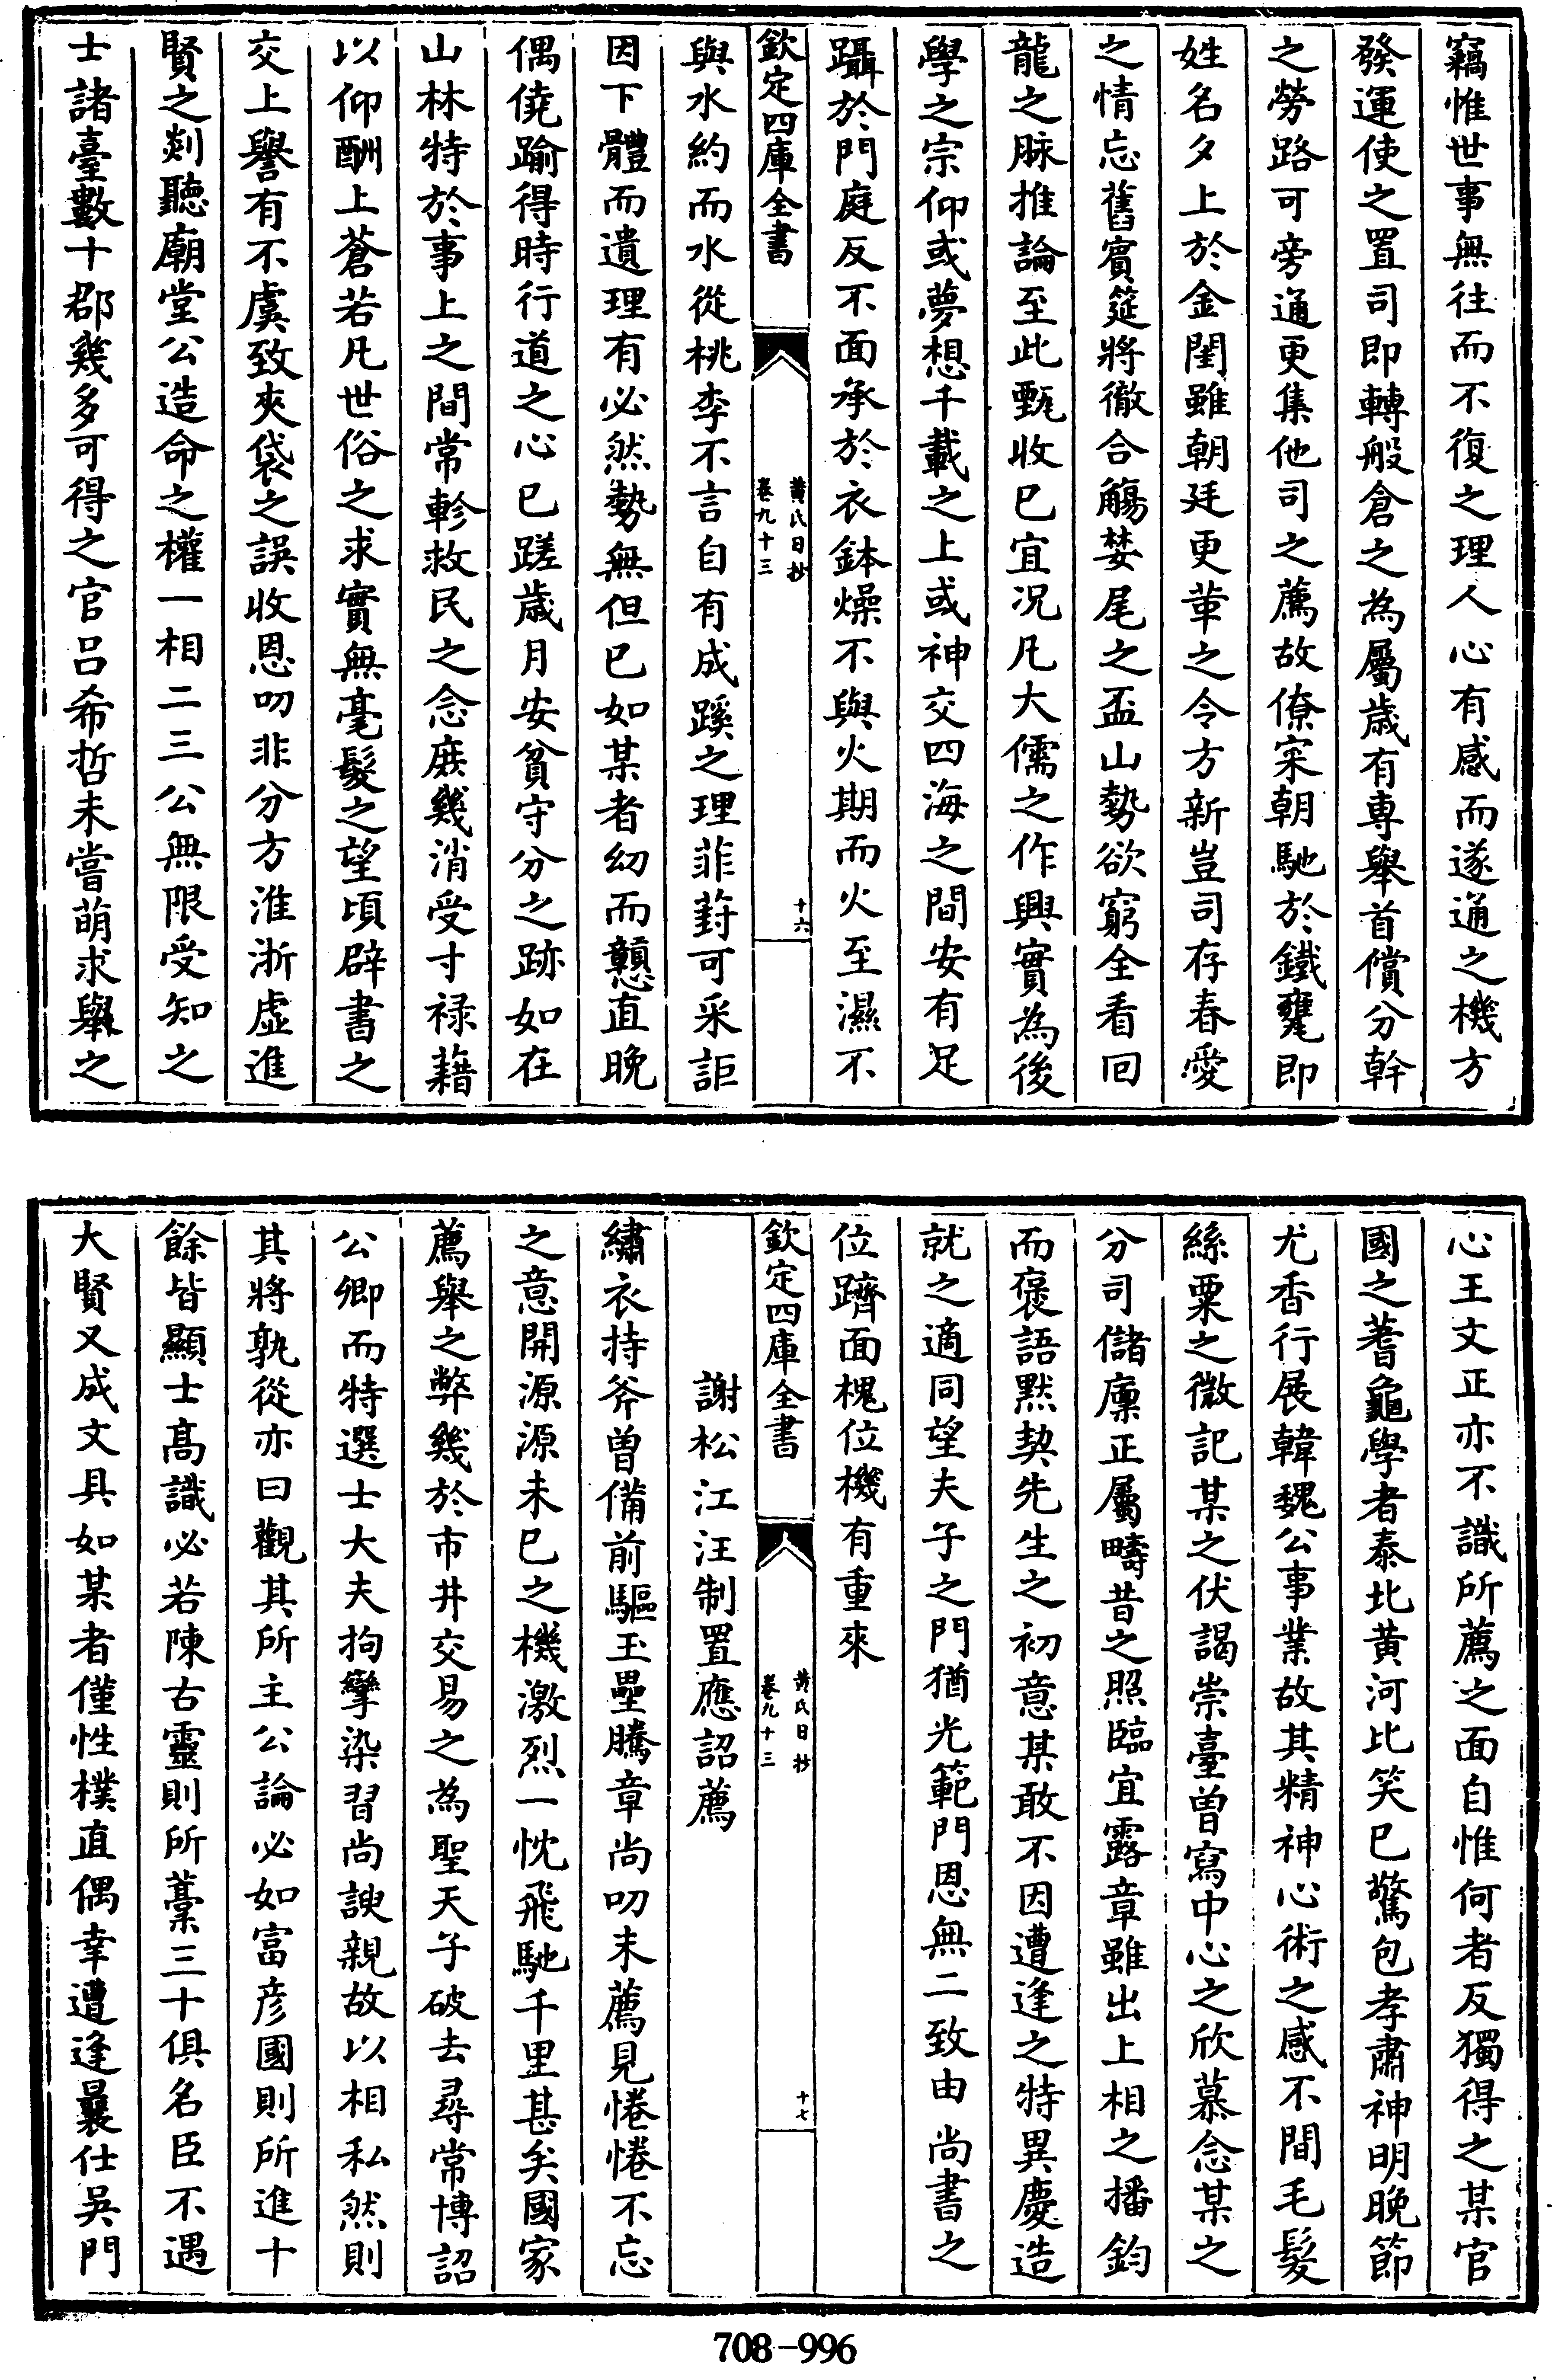 竊惟世事無往而不復之理人心有感而遂通之機方
發運使之置司即轉般倉之為屬歲有專舉首償分幹
之勞路可旁通更集他司之薦故僚寀朝馳於鐵甕即
姓名夕上於金閨雖朝廷更葷之令方新豈司存春愛
之情忘舊賓筵將徹合觴婪尾之盃山勢欲窮全看回
龍之脉推論至此甄收已宜况凡大儒之作興實為後
學之宗仰或夢想千載之上或神交四海之間安有足
躡於門庭反不面承於衣鉢燥不與火期而火至濕不
欽定四庫全書
黄氏日抄
卷九十三
十六
與水約而水從桃李不言自有成蹊之理菲葑可采詎
因下體而遺理有必然勢無但已如某者幼而戇直晚
偶僥踰得時行道之心已蹉歲月安貧守分之跡如在
山林特於事上之間常軫救民之念庶幾消受寸禄藉
以仰酬上蒼若凡世俗之求實無毫髮之望頃辟書之
交上譽有不虞致夾袋之誤收恩叨非分方淮浙虚進
賢之剡聽廟堂公造命之權一相二三公無限受知之
士諸臺數十郡幾多可得之官吕希哲未嘗萌求舉之
心王文正亦不識所薦之面自惟何者反獨得之某官
國之蓍龜學者泰北黄河比笑已驚包孝肅神明晚節
尤香行展韓魏公事業故其精神心術之感不間毛髮
絲粟之微記某之伏謁崇臺曾寫中心之欣慕念某之
分司儲廩正屬疇昔之照臨宜露章雖出上相之播鈞
而褒語黙契先生之初意某敢不因遭逢之特異慶造
就之適同望夫子之門猶光範門恩無二致由尚書之
位躋面槐位機有重來
欽定四庫全書
黄氏日抄
卷九十三
十七
謝松江汪制置應詔薦
繡衣持斧曾備前驅玉壘騰章尚叨末薦見惓惓不忘
之意開源源未已之機激烈一忱飛馳千里甚矣國家
薦舉之弊幾於市井交易之為聖天子破去尋常博詔
公卿而特選士大夫拘攣染習尚諛親故以相私然則
其將孰從亦曰觀其所主公論必如富彦國則所進十
餘皆顯士髙識必若陳古靈則所藁三十俱名臣不遇
大賢又成文具如某者僅性樸直偶幸遭逢曩仕吳門
708-996